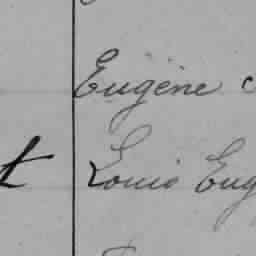 Eugène
Louis Eug